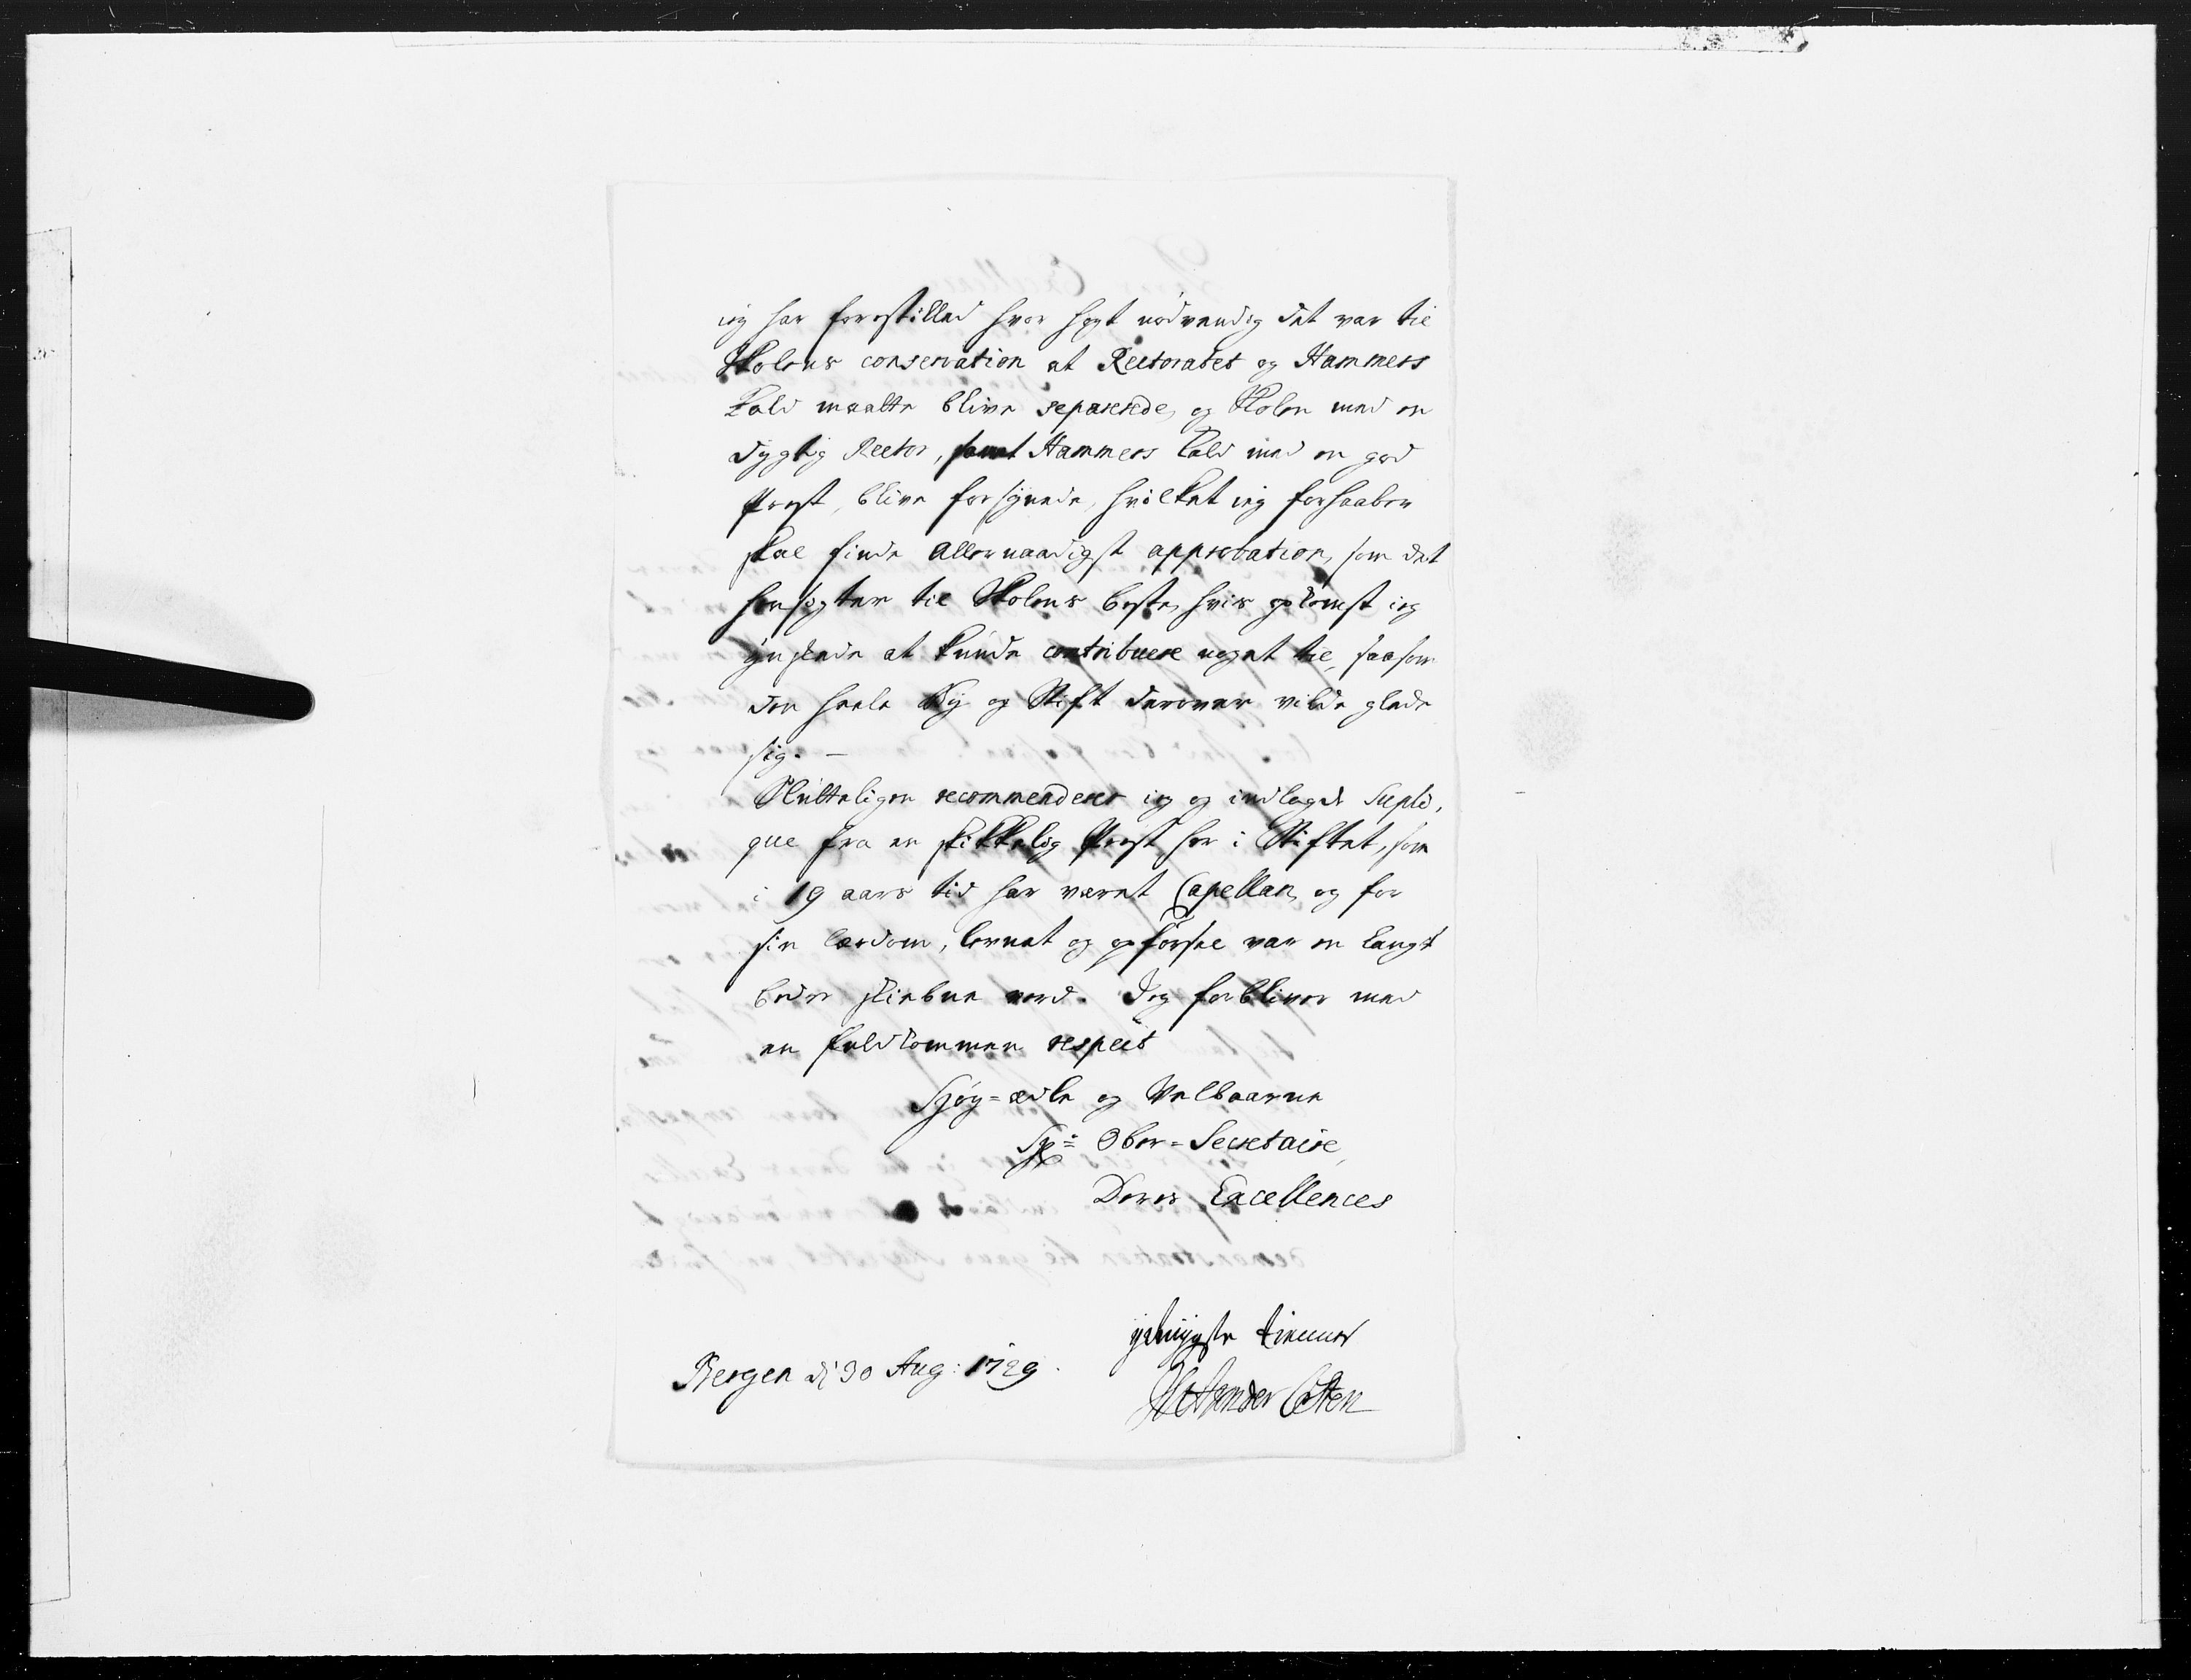 jeg har forestilled hvor høyt nødvendig det var til
Skolens conservation at Rectoratet og Hammers
Kald maatte blive separerede, og Skolen med en
dygtig Rector, samt Hammers Kald med en god
Præst, blive forsynede, hvilket jeg forhaaber
skal finde Allernaadigst approbation, som det
hensigter til Skolens beste, hvis opkomst jeg
ynskede at kunde contribuere noget til, saasom
den heele By og Stift derover vilde glæde
sig. —
Slutteligen recommenderer jeg og indlagde Supli,
que fra en skikkelig Præst her i Stiftet, som
i 19 aars tid har været Capellan, og for
sin lærdom, levnet og opførsel var en langt
bedre skiebne værd. Jeg forbliver med
en fuldkommen respect
Høy=ædle og Velbaarne
Hr: Ober=Secretaire,
Deres Excellences
ydmygste tiener
Bergen d: 30 Aug: 1729.